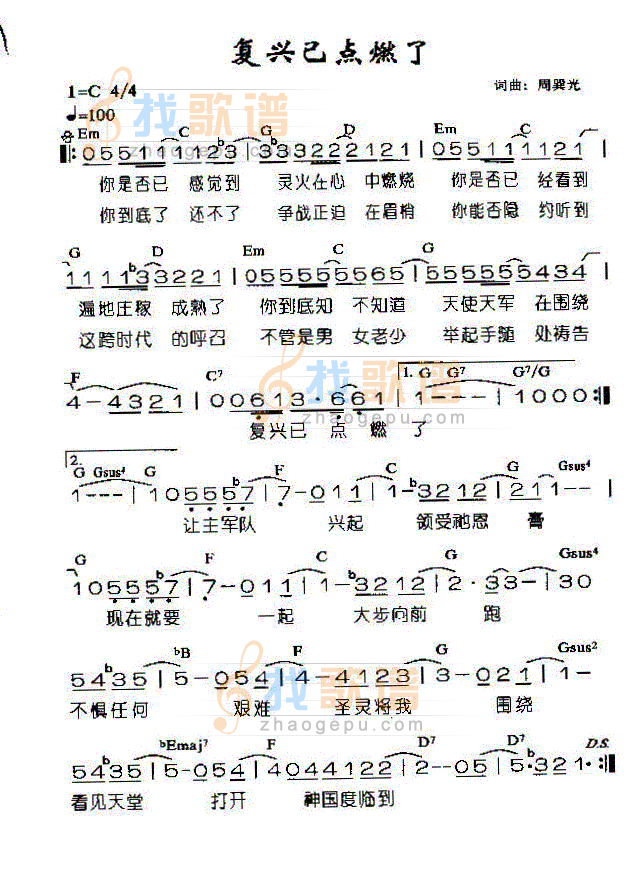 复兴已点燃了
1=C 4/4
词曲：周巽光
♩=100
Em C G D Em C
0 5 5 1 1 1 1 2 ♭3 | ♭3 3 3 2 2 2 2 1 2 1 | 0 5 5 1 1 1 1 2 1 |
你是否已 感觉到 灵火在心 中燃烧 你是否已 经看到
你到底了 还不了 争战正迫 在眉梢 你能否隐 约听到
G D Em C G
1 1 1 1 ♭3 3 2 2 1 | 0 5 5 5 5 5 5 5 6 5 | 5 5 5 5 5 5 4 3 4 |
遍地庄稼 成熟了 你到底知 不知道 天使天军 在围绕
这跨时代 的呼召 不管是男 女老少 举起手随 处祷告
F C7 1. G G7 G7/G
4 - 4 3 2 1 | 0 0 6 1 3 · 6 6 1 | 1 - - - | 1 0 0 0 :‖
复兴已 点 燃 了
2.
G Gsus4 G F C G Gsus4
1 - - - | 1 0 5 5 5 5 ♭7 | 7 - 0 1 1 | 1 - ♭3 2 1 2 | 2 1 1 - -
让主军队 兴起 领受祂恩 膏
G F C G Gsus4
1 0 5 5 5 5 ♭7 | 7 - 0 1 1 | 1 - ♭3 2 1 2 | 2 · 3 3 - | 3 0
现在就要 一起 大步向前 跑
♭B F G Gsus2
5 4 ♭3 5 | 5 - 0 5 4 | 4 - 4 1 2 3 | 3 - 0 2 1 | 1 -
不惧任何 艰难 圣灵将我 围绕
♭Emaj7 F D7 D7 D.S.
5 4 ♭3 5 | 5 - 0 5 4 | 4 0 4 4 1 2 2 | 2 - 0 5 | 5 · ♭3 2 1 :‖
看见天堂 打开 神国度临到
找歌谱
zhaogepu.com
找歌谱
zhaogepu.com
找歌谱
zhaogepu.com